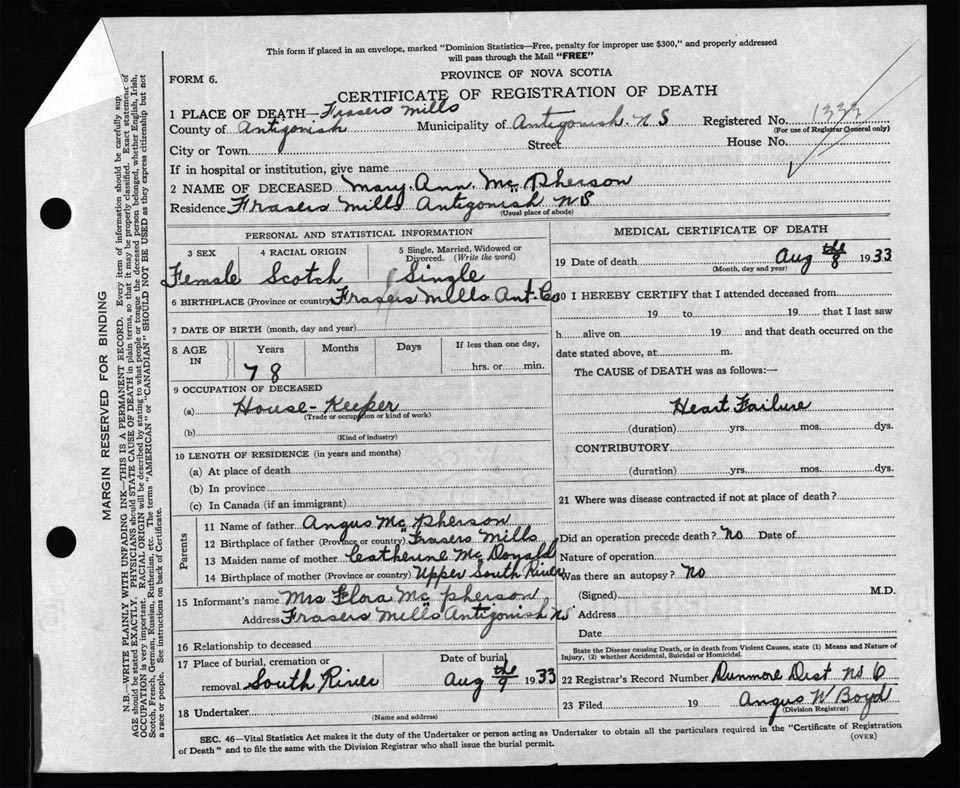 This form if placed in an envelope, marked "Dominion Statistics—Free, penalty for improper use $300," and properly addressed
will pass through the Mail "FREE"
FORM 6.
PROVINCE OF NOVA SCOTIA
CERTIFICATE OF REGISTRATION OF DEATH
1 PLACE OF DEATH— Frasers Mills
County of Antigonish Municipality of Antigonish. N S Registered No. 1333
(For use of Registrar General only)
City or Town Street House No.
If in hospital or institution, give name
2 NAME OF DECEASED Mary. Ann. Mc. Pherson
Residence Frasers Mills Antigonish NS
(Usual place of abode)
PERSONAL AND STATISTICAL INFORMATION
3 SEX 4 RACIAL ORIGIN 5 Single, Married, Widowed or
Divorced. (Write the word)
Female Scotch Single
6 BIRTHPLACE (Province or country) Frasers Mills Ant. Co
7 DATE OF BIRTH (month, day and year)
8 AGE IN Years Months Days If less than one day,
78 hrs. or min.
9 OCCUPATION OF DECEASED
(a) House-Keeper
(Trade or occupation or kind of work)
(b)
(Kind of industry)
10 LENGTH OF RESIDENCE (in years and months)
(a) At place of death
(b) In province
(c) In Canada (if an immigrant)
Parents
11 Name of father Angus Mc Pherson
12 Birthplace of father (Province or country) Frasers Mills
13 Maiden name of mother Catherine Mc Donald
14 Birthplace of mother (Province or country) Upper South River
15 Informant's name Mrs Flora Mc pherson
Address Frasers Mills Antigonish NS
16 Relationship to deceased
17 Place of burial, cremation or Date of burial
removal South River Aug the 9 1933
18 Undertaker
(Name and address)
MEDICAL CERTIFICATE OF DEATH
19 Date of death Aug the 8 1933
(Month, day and year)
20 I HEREBY CERTIFY that I attended deceased from
19 to 19 that I last saw
h alive on 19 and that death occurred on the
date stated above, at m.
The CAUSE of DEATH was as follows:—
Heart Failure
(duration) yrs. mos. dys.
CONTRIBUTORY
(duration) yrs. mos. dys.
21 Where was disease contracted if not at place of death?
Did an operation precede death? No Date of
Nature of operation
Was there an autopsy? No
(Signed) M.D.
Address
Date
State the Disease causing Death, or in death from Violent Causes, state (1) Means and Nature of
Injury, (2) whether Accidental, Suicidal or Homicidal.
22 Registrar's Record Number Dunmore Dist No 6
23 Filed 19 Angus W Boyd
(Division Registrar)
SEC. 46—Vital Statistics Act makes it the duty of the Undertaker or person acting as Undertaker to obtain all the particulars required in the "Certificate of Registration
of Death" and to file the same with the Division Registrar who shall issue the burial permit.
(OVER)
MARGIN RESERVED FOR BINDING
N.B.—WRITE PLAINLY WITH UNFADING INK—THIS IS A PERMANENT RECORD. Every item of information should be carefully sup
AGE should be stated EXACTLY. PHYSICIANS should STATE CAUSE OF DEATH in plain terms, so that it may be properly classified. Exact statement of
OCCUPATION is very important. RACIAL ORIGIN will be described by stating to what people or tongue the deceased person belonged, whether English, Irish,
Scotch, French, German, Russian, Ruthenian, etc. The terms "AMERICAN" or "CANADIAN" SHOULD NOT BE USED as they express citizenship but not
a race or people. See instructions on back of Certificate.